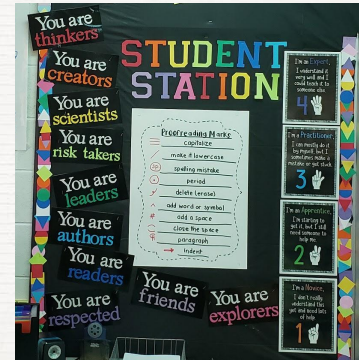 You are
thinkers
You are
creators
You are
scientists
You are
risk takers
You are
leaders
You are
authors
You are
readers
You are
respected
You are
friends
You are
explorers
STUDENT
STATION
Proofreading Marks
capitalize
make it lowercase
spelling mistake
period
delete (erase)
add word or symbol
add a space
close the space
paragraph
indent
I'm an Expert,
I understand it
very well and I
could teach it to
someone else.
4
I'm a Practitioner,
I can mostly do it
by myself, but I
sometimes make a
mistake or get stuck.
3
I'm an Apprentice,
I'm starting to
get it, but I still
need someone to
help me.
2
I'm a Novice,
I don't really
understand this
yet and need lots
of help.
1